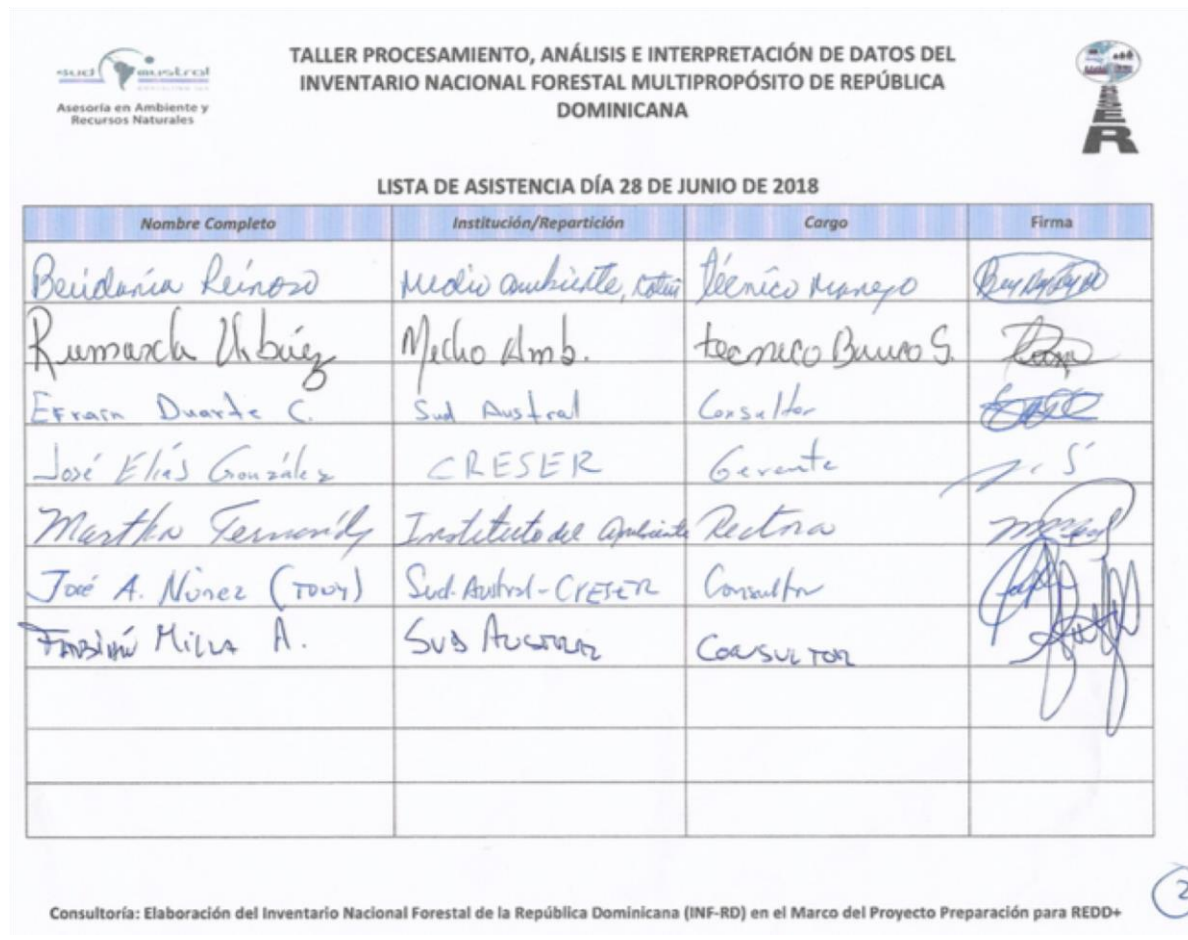 sud austral
Asesoría en Ambiente y
Recursos Naturales
TALLER PROCESAMIENTO, ANÁLISIS E INTERPRETACIÓN DE DATOS DEL
INVENTARIO NACIONAL FORESTAL MULTIPROPÓSITO DE REPÚBLICA
DOMINICANA
LISTA DE ASISTENCIA DÍA 28 DE JUNIO DE 2018
Nombre Completo Institución/Repartición Cargo Firma
Reinoso Medio ambiente, Técnico Manejo
Amb.
Efraín Duarte C. Sud Austral Consultor
José Elías González CRESER Gerente
Martha Instituto del ambiente Rectora
José A. Núnez (TONY) Sud-Austral-CRESER Consultor
FABIÁN MILLA A. SUD AUSTRAL CONSULTOR
2
Consultoría: Elaboración del Inventario Nacional Forestal de la República Dominicana (INF-RD) en el Marco del Proyecto Preparación para REDD+